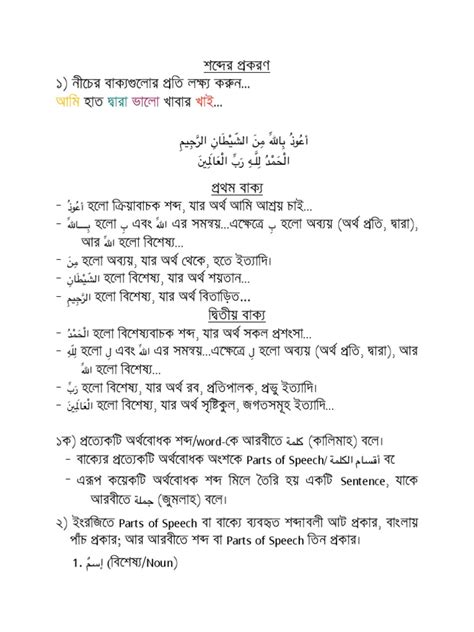 শব্দের প্রকরণ
১) নীচের বাক্যগুলোর প্রতি লক্ষ্য করুন...
আমি হাত দ্বারা ভালো খাবার খাই...
أَعُوذُ بِاللَّهِ مِنَ الشَّيْطَانِ الرَّجِيمِ
الْحَمْدُ لِلَّهِ رَبِّ الْعَالَمِينَ
প্রথম বাক্য
- أَعُوذُ হলো ক্রিয়াবাচক শব্দ, যার অর্থ আমি আশ্রয় চাই...
- بِـــاللَّهِ হলো بِ এবং اللَّهِ এর সমন্বয়...এক্ষেত্রে بِ হলো অব্যয় (অর্থ প্রতি, দ্বারা),
আর اللَّهِ হলো বিশেষ্য...
- مِنَ হলো অব্যয়, যার অর্থ থেকে, হতে ইত্যাদি।
- الشَّيْطَانِ হলো বিশেষ্য, যার অর্থ শয়তান...
- الرَّجِيمِ হলো বিশেষ্য, যার অর্থ বিতাড়িত...
দ্বিতীয় বাক্য
- الْحَمْدُ হলো বিশেষ্যবাচক শব্দ, যার অর্থ সকল প্রশংসা...
- لِلَّهِ হলো لِ এবং اللَّهِ এর সমন্বয়...এক্ষেত্রে لِ হলো অব্যয় (অর্থ প্রতি, দ্বারা), আর
اللَّهِ হলো বিশেষ্য...
- رَبِّ হলো বিশেষ্য, যার অর্থ রব, প্রতিপালক, প্রভু ইত্যাদি।
- الْعَالَمِينَ হলো বিশেষ্য, যার অর্থ সৃষ্টিকুল, জগতসমূহ ইত্যাদি...
১ক) প্রত্যেকটি অর্থবোধক শব্দ/word-কে আরবীতে كلمة (কালিমাহ) বলে।
- বাক্যের প্রত্যেকটি অর্থবোধক অংশকে Parts of Speech/ أقسام الكلمة বে
- এরূপ কয়েকটি অর্থবোধক শব্দ মিলে তৈরি হয় একটি Sentence, যাকে
আরবীতে جملة (জুমলাহ) বলে।
২) ইংরজিতে Parts of Speech বা বাক্যে ব্যবহৃত শব্দাবলী আট প্রকার, বাংলায়
পাঁচ প্রকার; আর আরবীতে শব্দ বা Parts of Speech তিন প্রকার।
1. إسمٌ (বিশেষ্য/Noun)